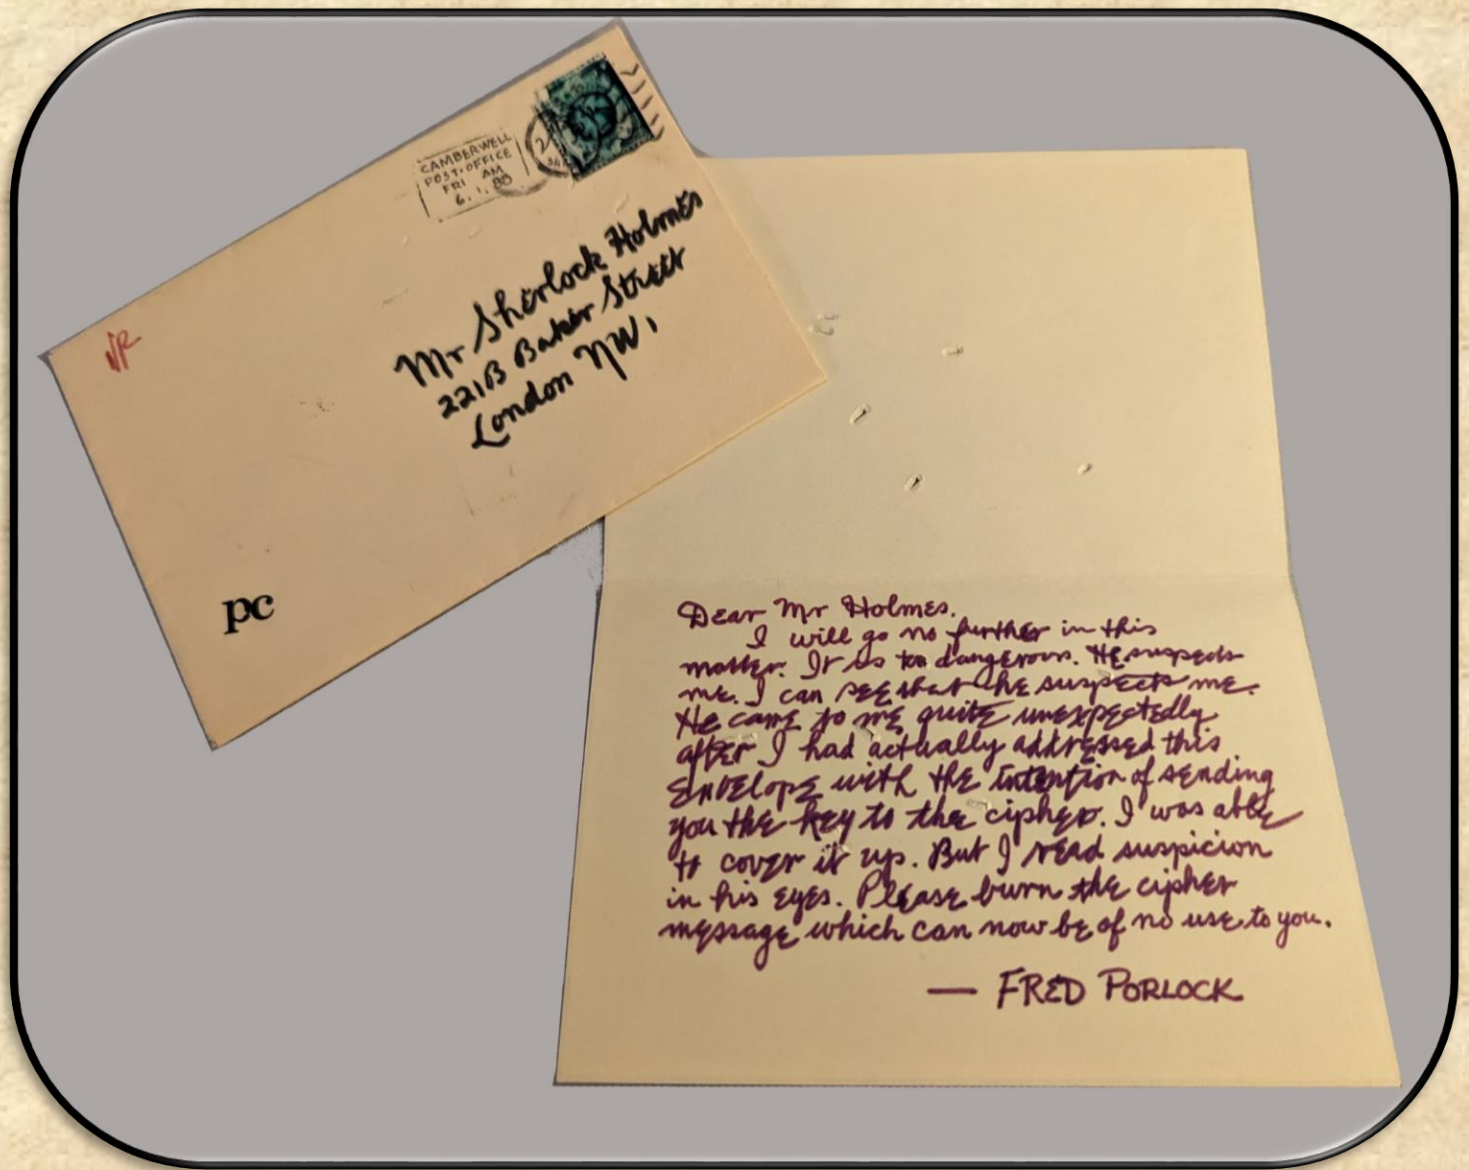 CAMBERWELL
POST-OFFICE
FRI AM
6. 1. 88
Mr Sherlock Holmes
221B Baker Street
London NW1
pc
Dear Mr Holmes.
I will go no further in this
matter. It is too dangerous. He suspects
me. I can see that he suspects me.
He came to me quite unexpectedly
after I had actually addressed this
envelope with the intention of sending
you the key to the cipher. I was able
to cover it up. But I read suspicion
in his eyes. Please burn the cipher
message which can now be of no use to you.
— FRED PORLOCK